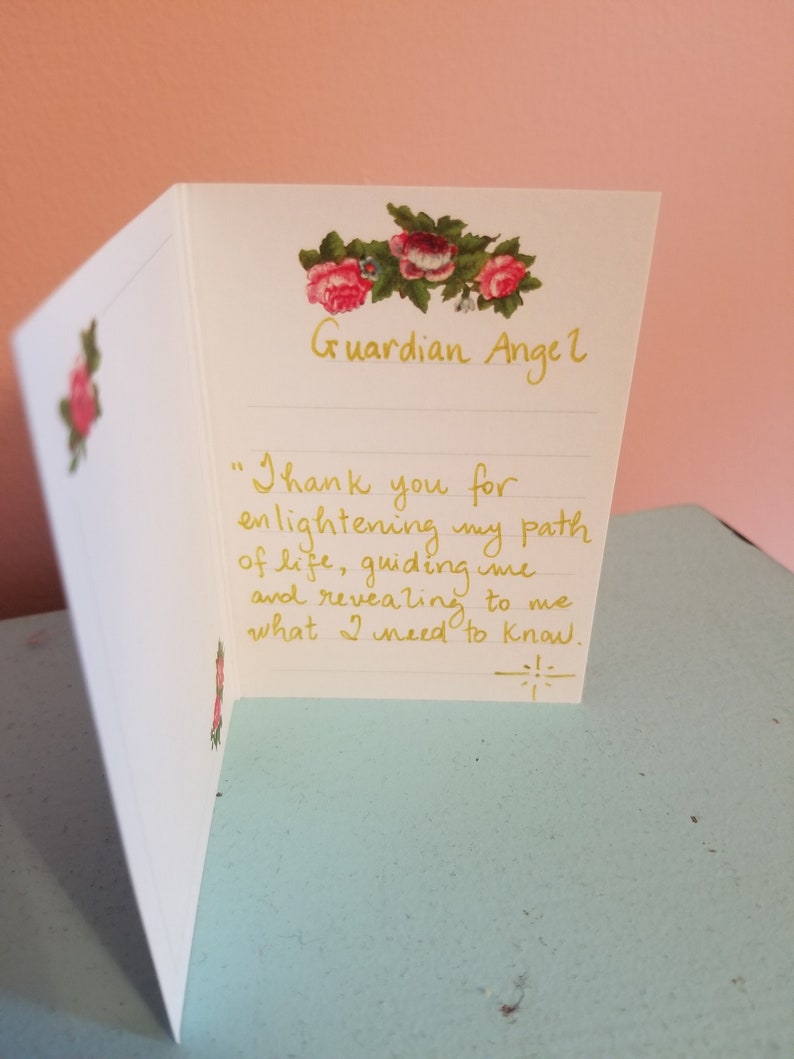 Guardian Angel
"Thank you for
enlightening my path
of life, guiding me
and revealing to me
what I need to know.